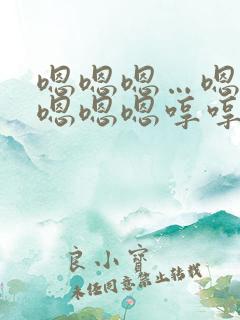 嗯嗯嗯…嗯
嗯嗯嗯哼哼
良小寶
未经同意禁止转载